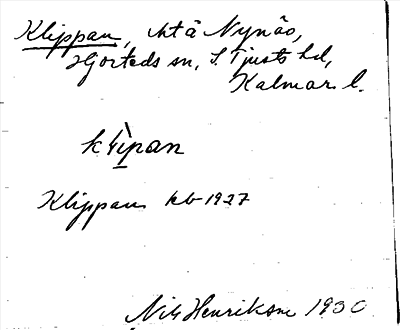 Klippan, lht å Nynäs,
Hjorteds sn, S. Tjusts hd,
Kalmar l.
klipan
Klippan kb 1927
Nils Henriksson 1930